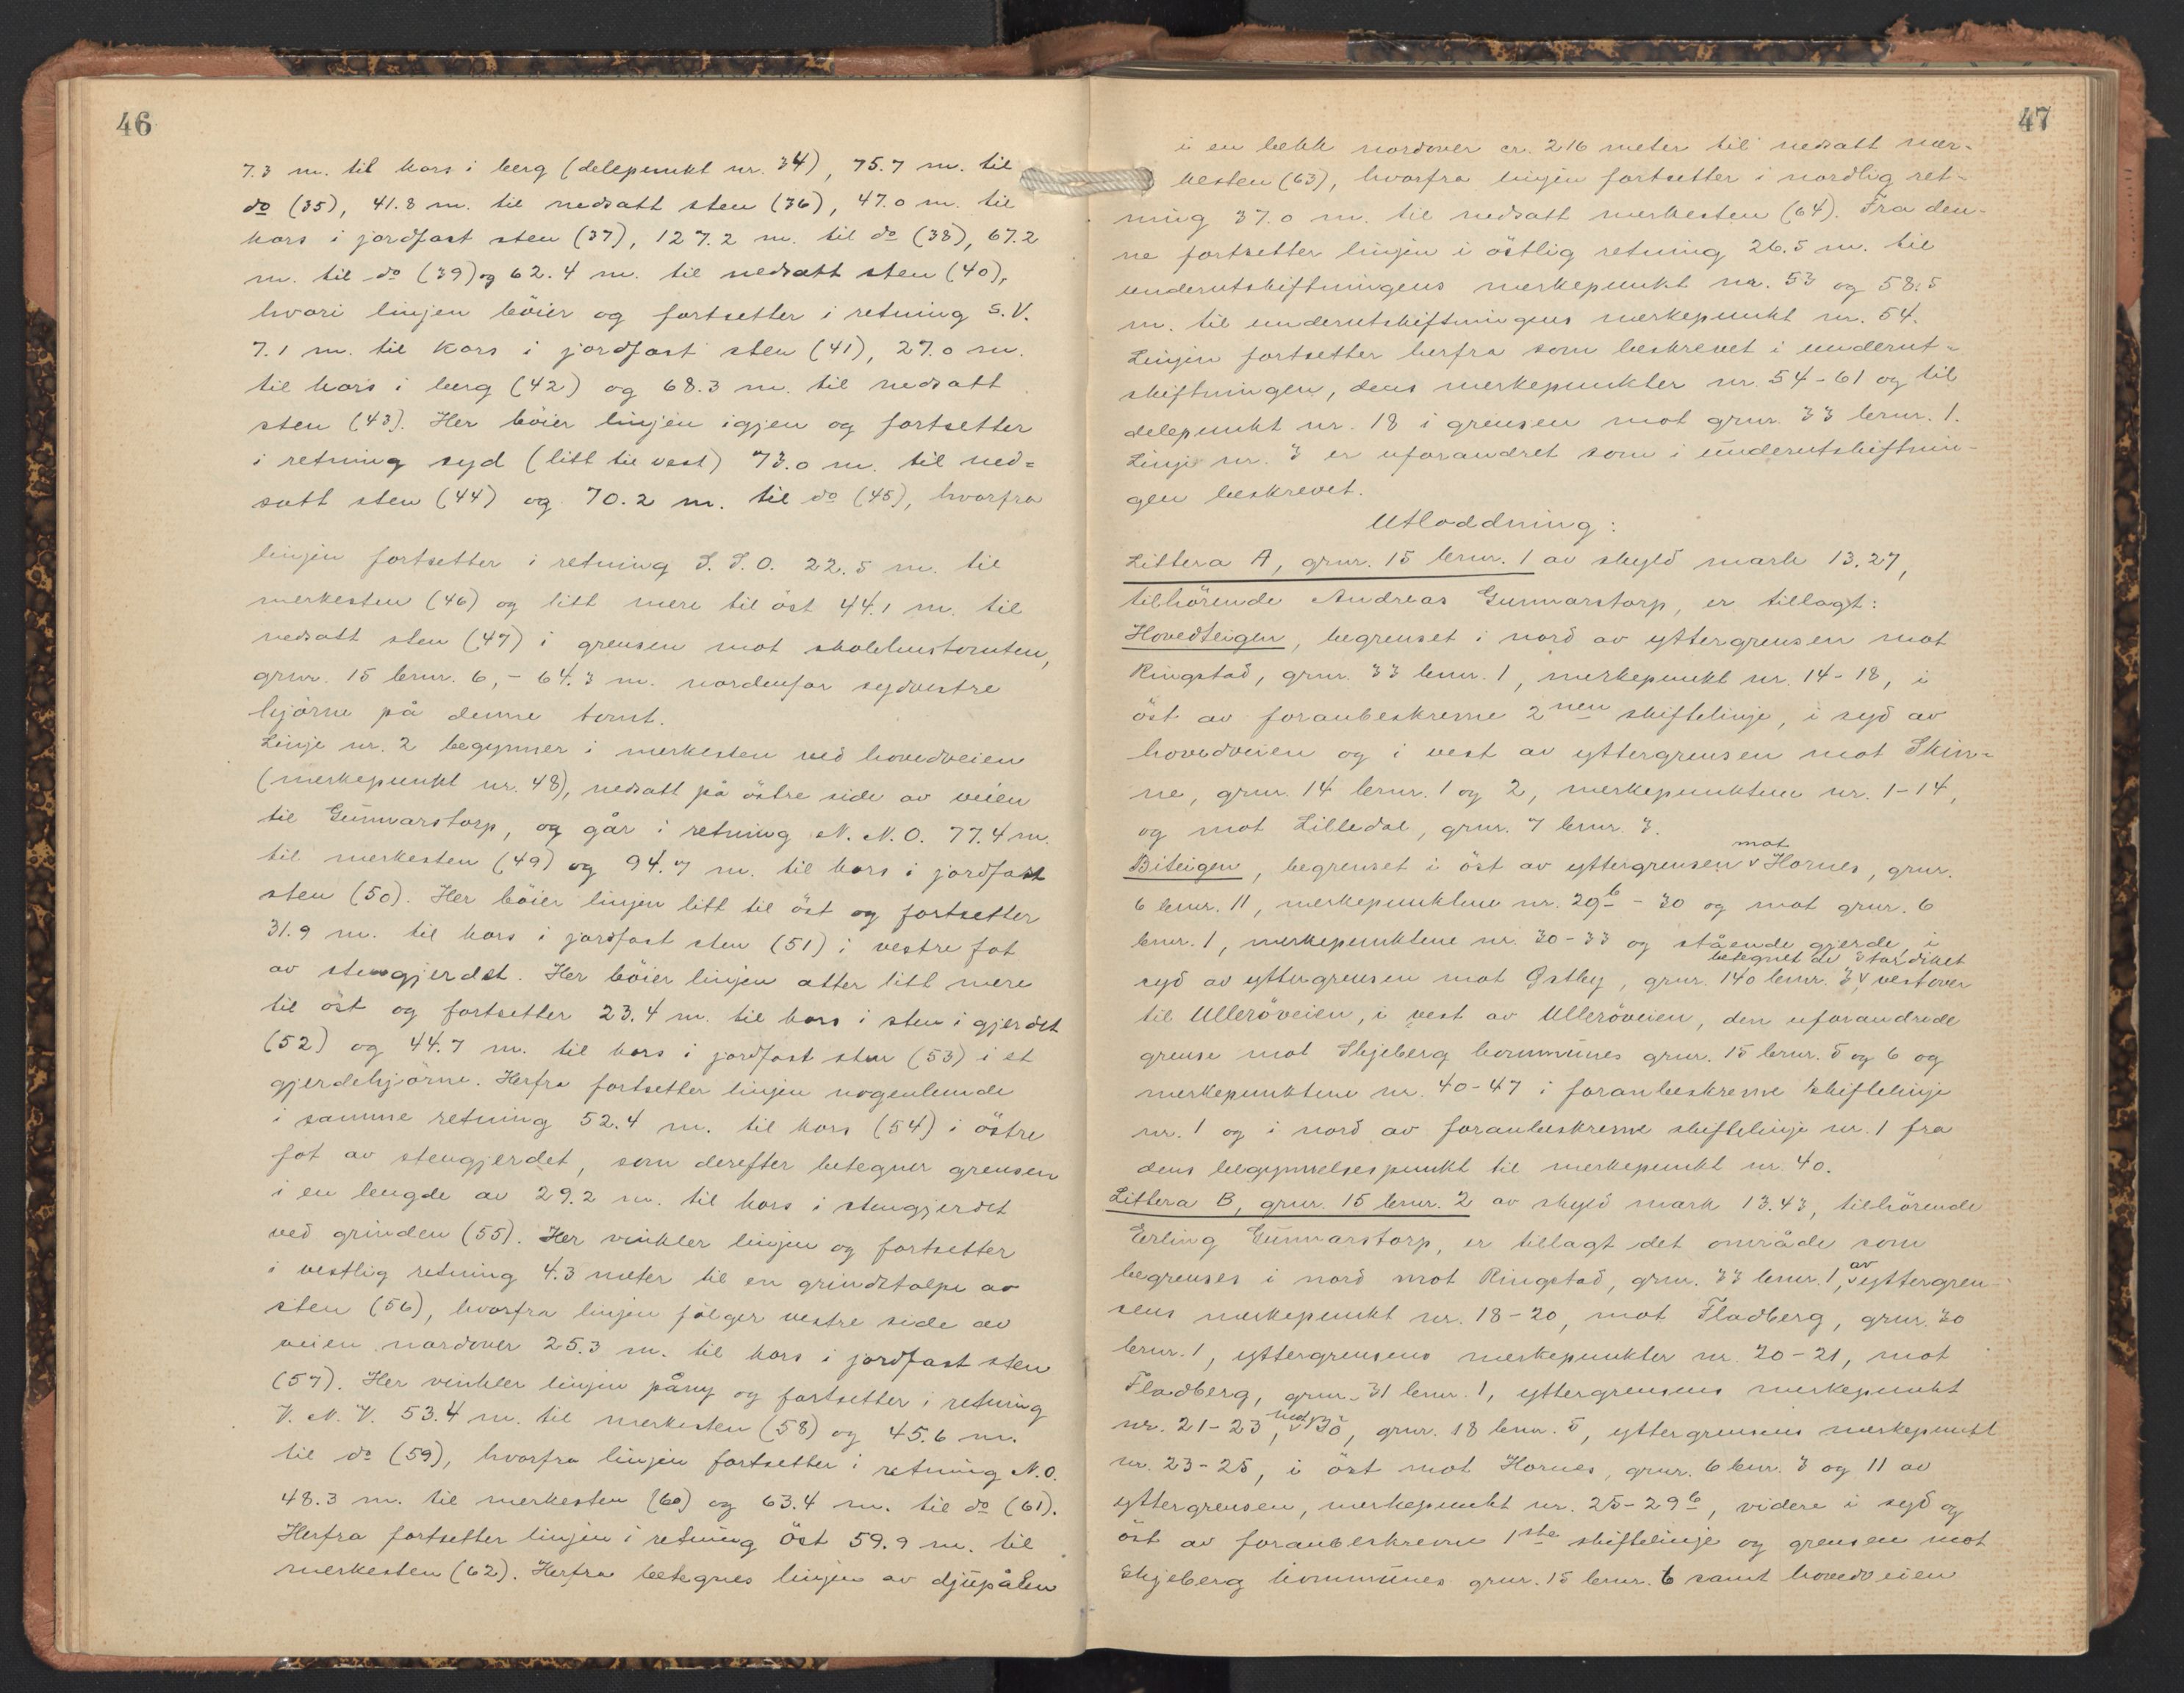 46
7.3 m. til kors i berg (delepunkt nr. 34), 75.7 m. til
do (35), 41.8 m. til nedsatt sten (36), 47.0 m. til
kors i jordfast sten (37), 127.2 m. til do (38), 67.2
m. til do (39) og 62.4 m. til nedsatt sten (40),
hvori linjen böier og fortsetter i retning S.V.
7.1 m. til kors i jordfast sten (41), 27.0 m.
til kors i berg (42) og 68.3 m. til nedsatt
sten (43). Her böier linjen igjen og fortsetter
i retning syd (litt til vest) 73.0 m. til ned=
satt sten (44) og 70.2 m. til do (45), hvorfra
linjen fortsetter i retning S.S.O. 22.5 m. til
merkesten (46) og litt mere til öst 44.1 m. til
nedsatt sten (47) i grensen mot skolehustomten,
grnr. 15 brnr. 6, - 64.3 m. nordenfor sydvestre
hjörne på denne tomt.
Linje nr. 2 begynner i merkesten ved hovedveien
(merkepunkt nr. 48), nedsatt på östre side av veien
til Gunnarstorp, og går i retning N.N.O. 77.4 m.
til merkesten (49) og 94.7 m. til kors i jordfast
sten (50). Her böier linjen litt til öst og fortsetter
31.9 m. til kors i jordfast sten (51) i vestre fot
av stengjerdet. Her böier linjen atter litt mere
til öst og fortsetter 23.4 m. til kors i sten i gjerdet
(52) og 44.7 m. til kors i jordfast sten (53) i et
gjerdehjörne. Herfra fortsetter linjen nogenlunde
i samme retning 52.4 m. til kors (54) i östre
fot av stengjerdet, som derefter betegner grensen
i en lengde av 29.2 m. til kors i stengjerdet
ved grinden (55). Her vinkler linjen og fortsetter
i vestlig retning 4.3 meter til en grindstolpe av
sten (56), hvorfra linjen fölger vestre side av
veien nordover 25.3 m. til kors i jordfast sten
(57). Her vinkler linjen påny og fortsetter i retning
V.N.V. 53.4 m. til merkesten (58) og 45.6 m.
til do (59), hvorfra linjen fortsetter i retning N.O.
48.3 m. til merkesten (60) og 63.4 m. til do (61).
Herfra fortsetter linjen i retning Öst 59.9 m. til
merkesten (62). Herfra betegnes linjen av djupålen
47
i en bekk nordover ca. 216 meter til nedsatt mer-
kesten (63), hvorfra linjen fortsetter i nordlig ret-
ning 37.0 m. til nedsatt merkesten (64). Fra den-
ne fortsetter linjen i östlig retning 26.5 m. til
underutskiftningens merkepunkt nr. 53 og 58.5
m. til underutskiftningens merkepunkt nr. 54.
Linjen fortsetter herfra som beskrevet i underut-
skiftningen, dens merkepunkter nr. 54-61 og til
delepunkt nr. 18 i grensen mot grnr. 33 brnr. 1.
Linje nr. 3 er uforandret som i underutskiftnin-
gen beskrevet.
Utloddning:
Littera A, grnr. 15 brnr. 1 av skyld mark 13.27,
tilhörende Andreas Gunnarstorp, er tillagt:
Hovedteigen, begrenset i nord av yttergrensen mot
Ringstad, grnr. 33 brnr. 1, merkepunkt nr. 14-18, i
öst av foranbeskrevne 2nen skiftelinje, i syd av
hovedveien og i vest av yttergrensen mot Skin-
ne, grnr. 14 brnr. 1 og 2, merkepunktene nr. 1-14,
og mot Lilledal, grnr. 7 brnr. 3.
Biteigen, begrenset i öst av yttergrensen mot Hornes, grnr.
6 brnr. 11, merkepunktene nr. 29b - 30 og mot grnr. 6
brnr. 1, merkepunktene nr. 30-33 og stående gjerde, i
syd av yttergrensen mot Östby, grnr. 140 brnr. 3, betegnet av Stordiket vestover
til Ulleröveien, i vest av Ulleröveien, den uforandrede
grense mot Skjeberg kommunes grnr. 15 brnr. 5 og 6 og
merkepunktene nr. 40-47 i foranbeskrevne skiftelinje
nr. 1 og i nord av foranbeskrevne skiftelinje nr. 1 fra
dens begynnelsespunkt til merkepunkt nr. 40.
Littera B, grnr. 15 brnr. 2 av skyld mark 13.43, tilhörende
Erling Gunnarstorp, er tillagt det område som
begrenses i nord mot Ringstad, grnr. 33 brnr. 1, av yttergren-
sens merkepunkt nr. 18-20, mot Fladberg, grnr. 30
brnr. 1, yttergrensens merkepunkter nr. 20-21, mot
Fladberg, grnr. 31 brnr. 1, yttergrensens merkepunkt
nr. 21-23, mot Bö, grnr. 18 brnr. 5, yttergrensens merkepunkt
nr. 23-25, i öst mot Hornes, grnr. 6 brnr. 3 og 11 av
yttergrensen, merkepunkt nr. 25-29b, videre i syd og
öst av foranbeskrevne 1ste skiftelinje og grensen mot
Skjeberg kommunes grnr. 15 brnr. 6 samt hovedveien